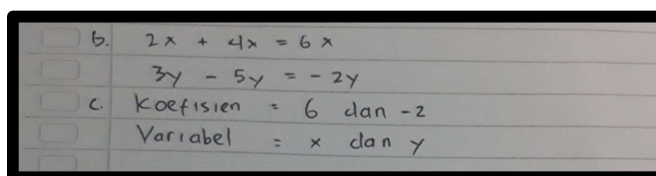 b. 2x + 4x = 6x
3y - 5y = - 2y
c. Koefisien = 6 dan -2
Variabel = x dan y